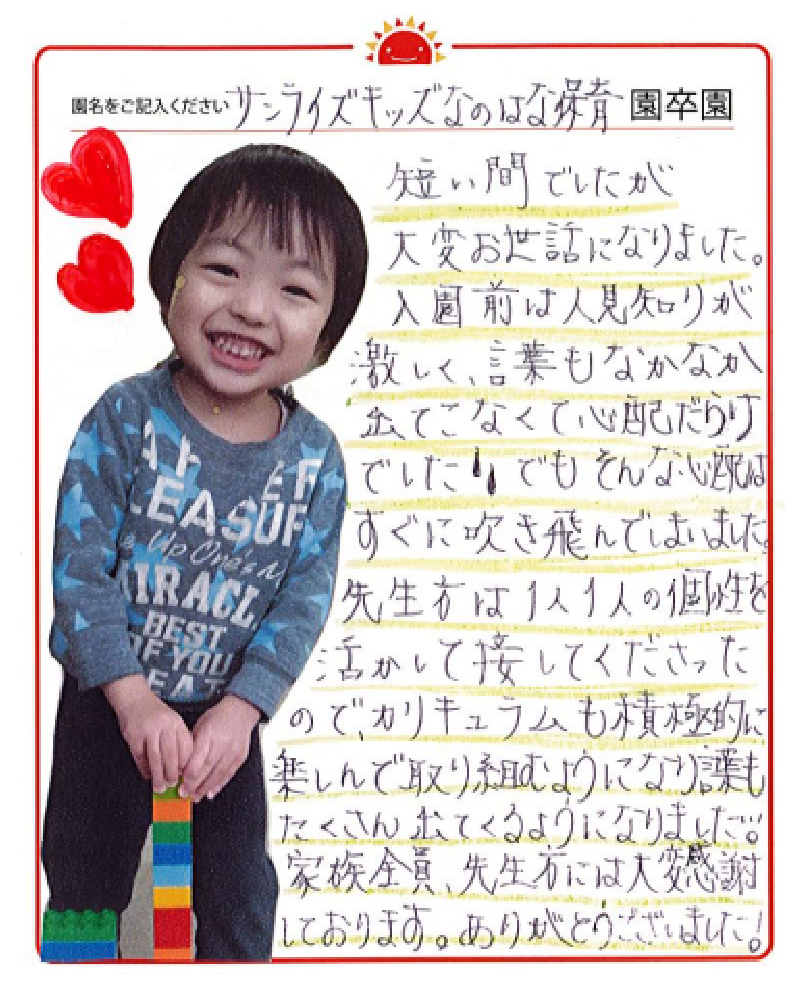 園名をご記入ください サンライズキッズなのはな保育 園卒園
短い間でしたが
大変お世話になりました。
入園前は人見知りが
激しく、言葉もなかなか
出てこなくて心配だらけ
でした でもそんな心配は
すぐに吹き飛んでしまいました
先生方は1人1人の個性を
活かして接してくださった
ので、カリキュラムも積極的に
楽しんで取り組むようになり言葉も
たくさん出てくるようになりました。
家族全員、先生方には大変感謝
しております。ありがとうございました!
LEASUR
Up One's
MIRACL
BEST
OF YOU